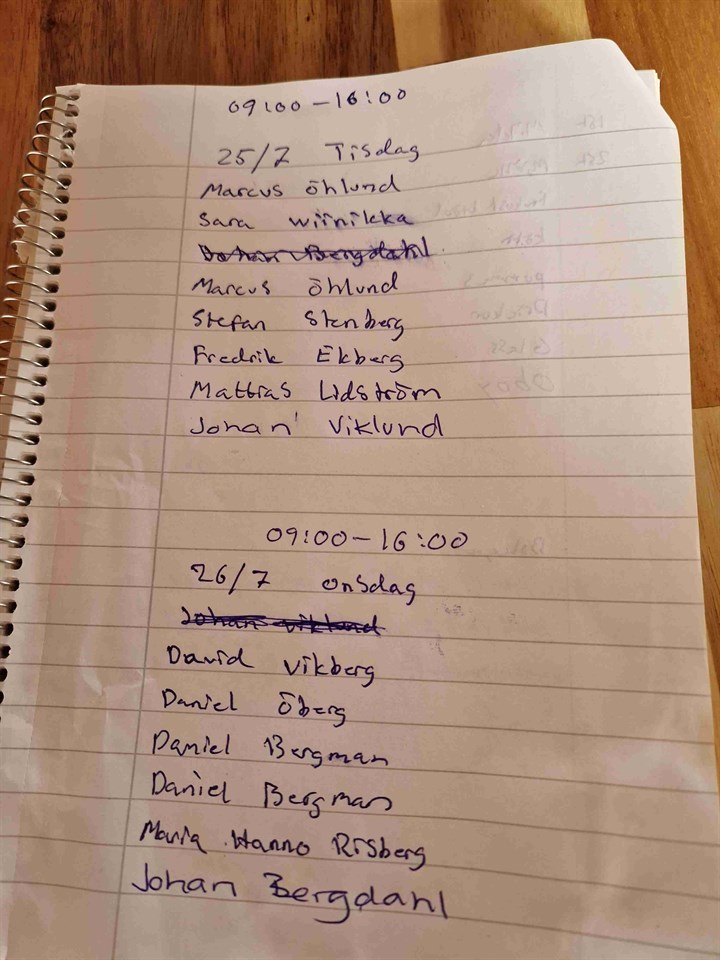 09:00-16:00
25/7 Tisdag
Marcus Öhlund
Sara Wiinikka
Johan Bergdahl
Marcus Öhlund
Stefan Stenberg
Fredrik Ekberg
Mattias Lidström
Johan Viklund
09:00-16:00
26/7 onsdag
Johan Viklund
David Vikberg
Daniel Öberg
Daniel Bergman
Daniel Bergman
Maria Hanno Risberg
Johan Bergdahl